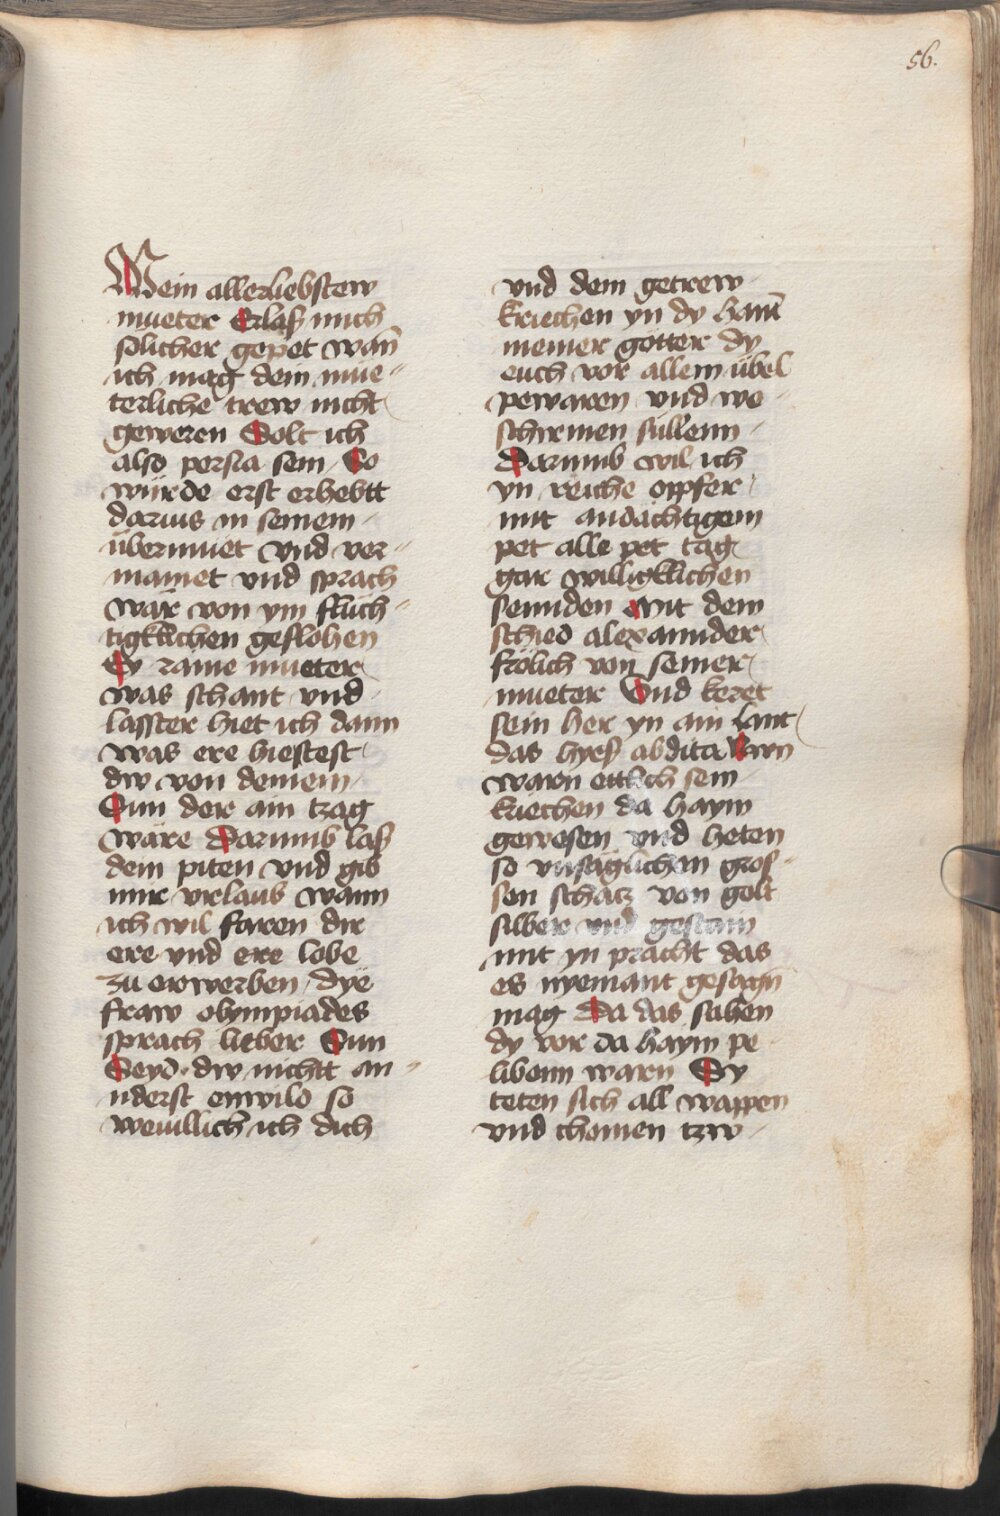 56.
Mein allerliebstew
mueter Erlaß mich
solicher gepet wan̄
ich mag dem mue-
terliche trew nicht
geweren Solt ich
also persia sein So
würde erst erhebtt
darius in seinem
übermuet vnd ver-
mainet vnd sprach
wär von ym flüch-
tigklichen geflohen
Ey raine mueter
was schant vnd
lasster hiet ich dann
was ere hiestest
dw von deinem
Sun der ain tzag
wäre Darumb laß
dein piten vnd gib
mir vrlaub wann
ich wil faren dir
ere vnd ere lobe
zu erwerben dye
fraw olympiades
sprach lieber Sun
Seyd dw nichtt an-
nderst enwild so
weuillich ich dich
vnd dem getrew
kriechen yn dy han̄t
meiner götter dy
euch vor allem übel
pewaren vnd we-
schirmen süllenn
Darumb wil ich
yn reiche opfer
mit andächtigem
pet alle pet tag
gar willigklichen
sennden Mit dem
schied alexannder
frölich von seiner
mueter Vnd keret
sein her yn ain lant
das hyeß abdita Nun
warn ettlich sein
kriechen da haym
gewesen vnd heten
so vnsäglichen gros-
sen schatz von golt
silber vnd gestain
mit yn pracht das
es nyemant gesagn̄
mag Da das sahen
dy vor da haym pe-
libenn warn Sy
teten sich all wappen
vnd chomen tzw